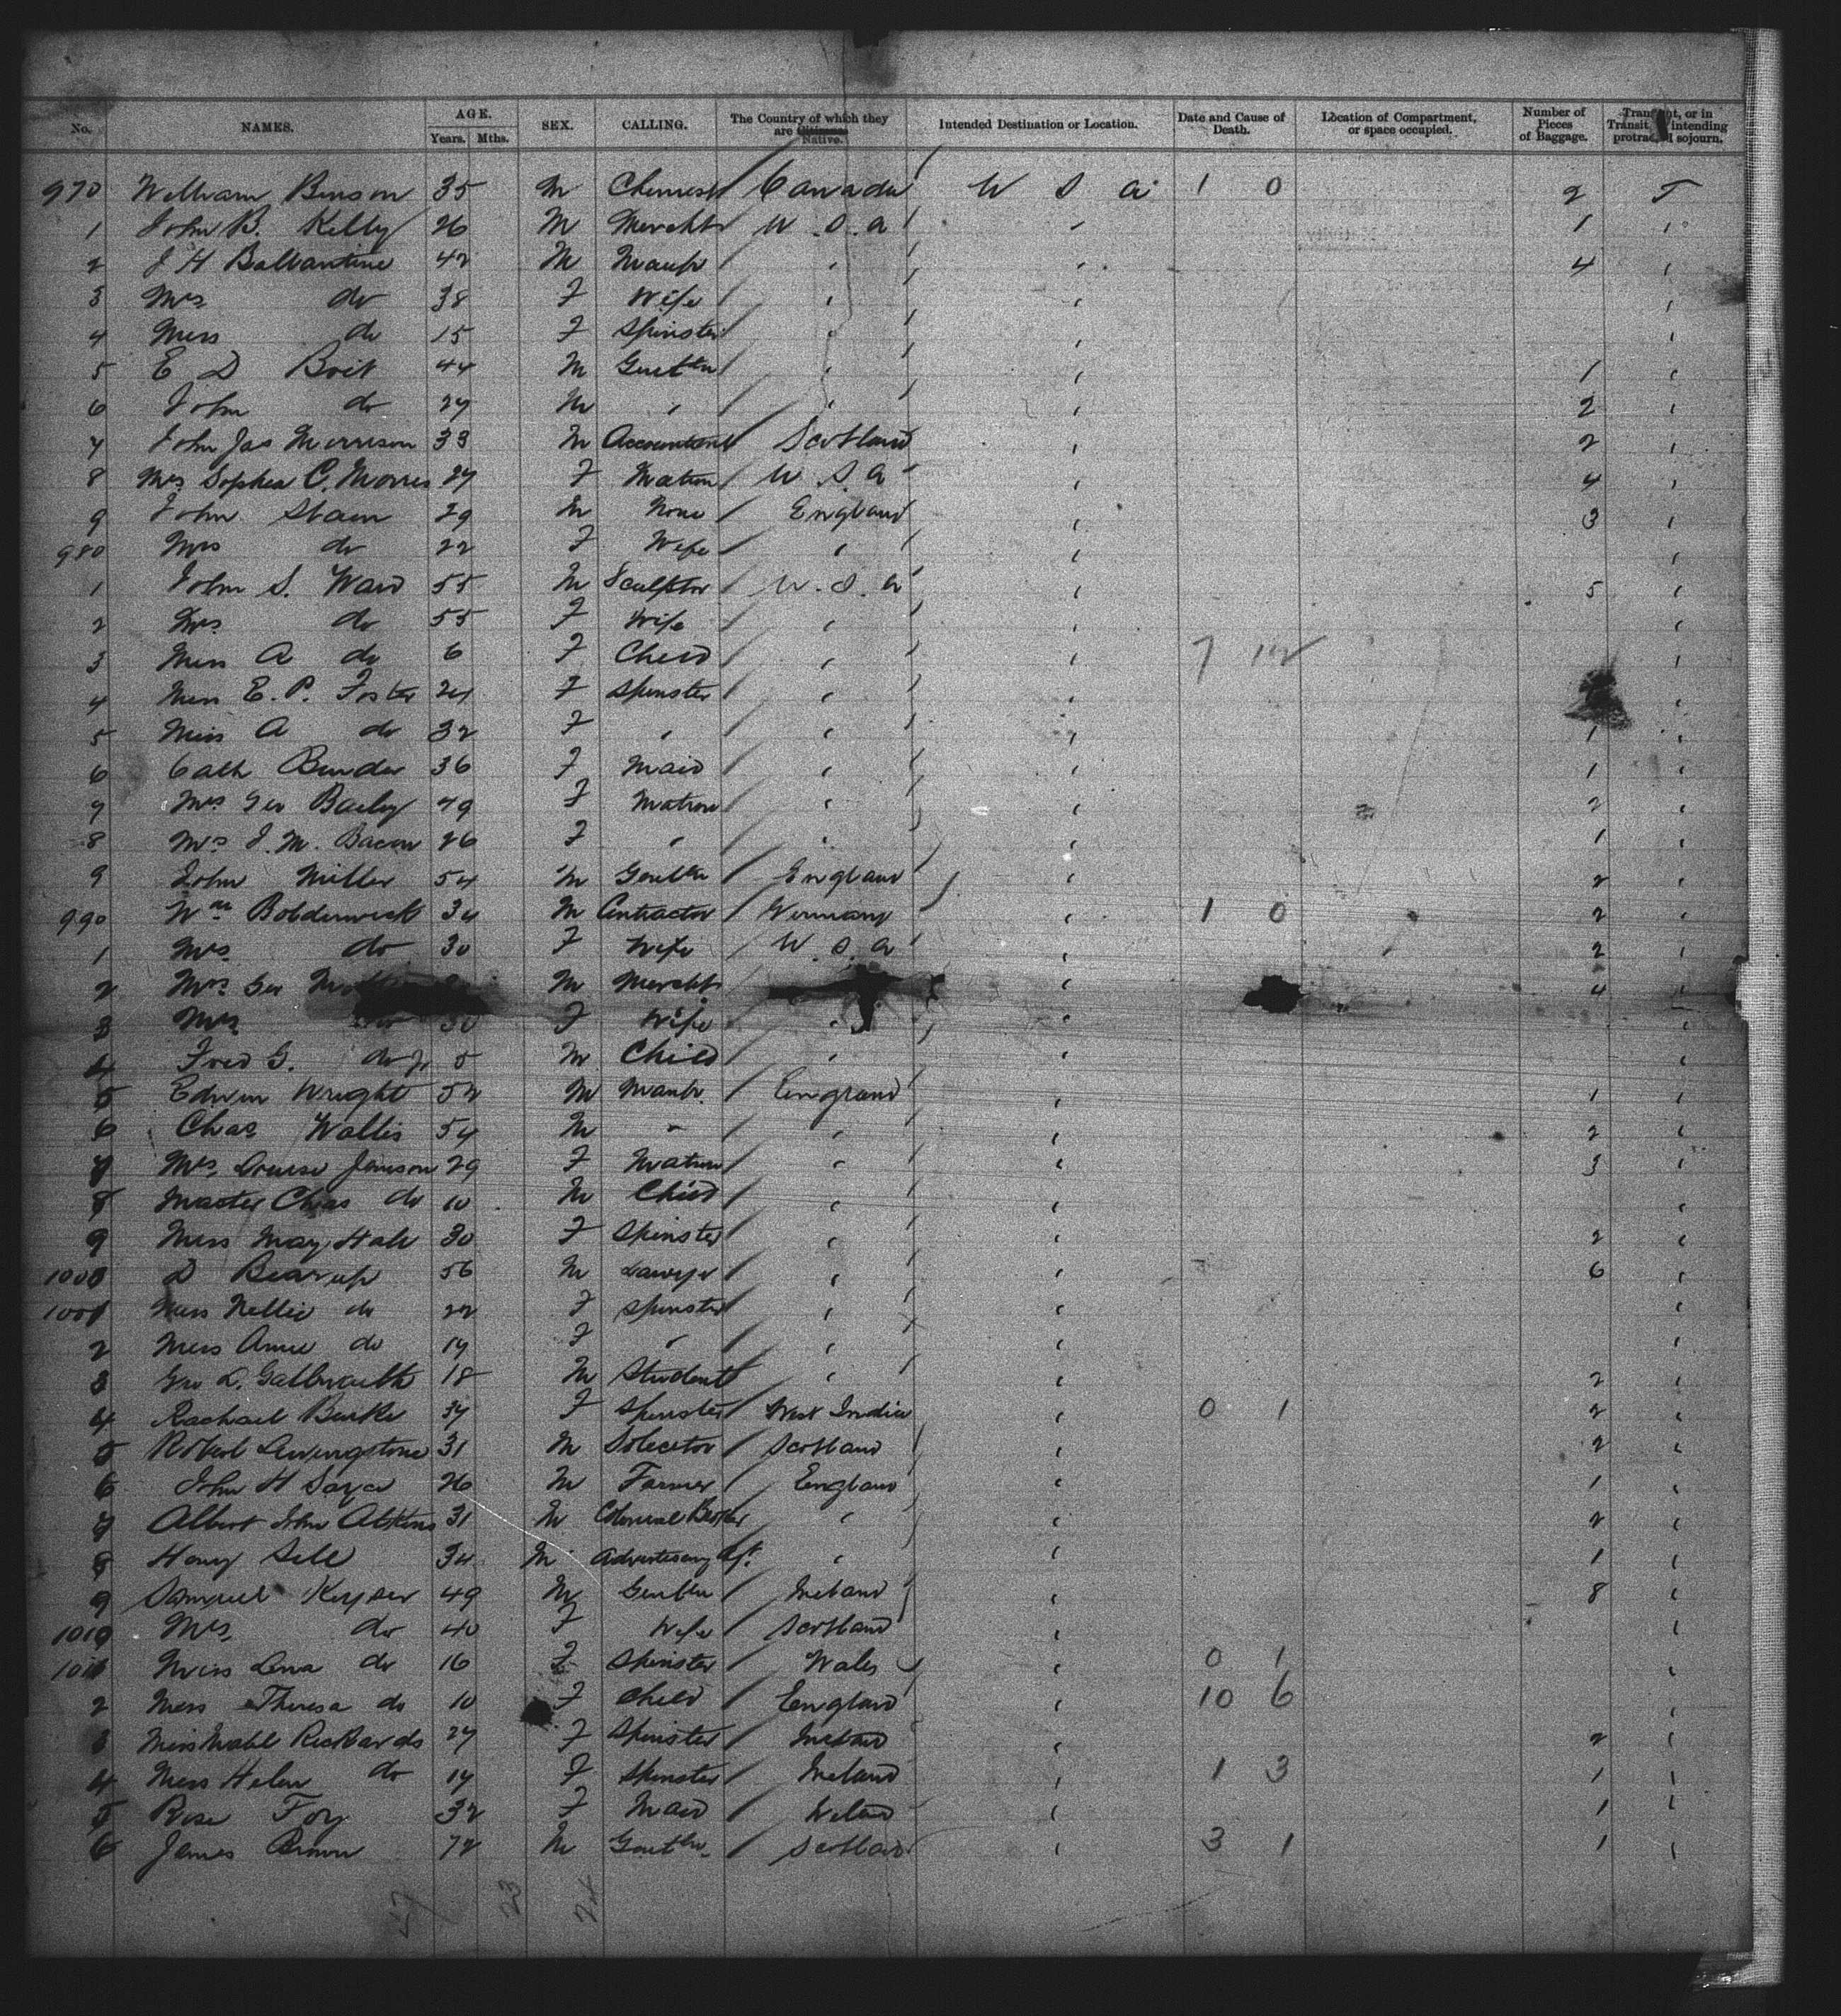 No. NAMES. AGE. Years. Mths. SEX. CALLING. The Country of which they are Citizens. Native. Intended Destination or Location. Date and Cause of Death. Location of Compartment, or space occupied. Number of Pieces of Baggage. Transient, or in Transit, or intending protracted sojourn.
970 William Benson 35 M Chemist Canada U S A 1 0 2 T
1 John B. Kelly 26 M Mercht U.S.A " 1 "
2 J H Ballantine 42 M Manfr " " 4 "
3 Mrs do 38 F Wife " " "
4 Miss do 15 F Spinster " " "
5 E D Boit 44 M Gentln " " 1 "
6 John do 27 M " " " 2 "
7 John Jas Morrison 33 M Accountant Scotland " 2 "
8 Mrs Sophia C. Morris 27 F Matron U.S.A " 4 "
9 John 29 M None England " 3 "
980 Mrs do 22 F Wife " " "
1 John S. Ward 55 M Sculptor U.S.A " 5 "
2 Mrs do 55 F Wife " " "
3 Miss A do 6 F Child " " 7 "
4 Miss E. P. Foster 24 F Spinster " " "
5 Miss A do 32 F " " " 1 "
6 Cath Bender 36 F Maid " " 1 "
7 Mrs Geo Baily 49 F Matron " " 2 "
8 Mrs J. M. Bacon 26 F " " " 1 "
9 John Miller 54 M Gentln England " 2 "
990 Wm 34 M Contractor Germany " 1 0 2 "
1 Mrs do 30 F Wife U.S.A " 2 "
2 Mrs Geo M Mercht " 4 "
3 Mrs do 30 F Wife " " "
4 Fred G. do Jr 5 M Child " " "
5 Edwin Wright 52 M Manfr. England " 1 "
6 Chas Wallis 54 M " " " 2 "
7 Mrs Louise Jamison 29 F Matron " " 3 "
8 Master Chas do 10 M Child " " "
9 Miss May Hale 30 F Spinster " " 2 "
1000 D Bearup 56 M Lawyer " " 6 "
1001 Miss Nellie do 22 F Spinster " " "
2 Miss Annie do 19 F " " " "
3 Geo L. Galbraith 18 M Student " " 2 "
4 Rachael Burke 37 F Spinster West Indies " 0 1 2 "
5 Robert Livingstone 31 M Solicitor Scotland " 2 "
6 John H 26 M Farmer England " 1 "
7 Albert John Atkins 31 M Colonial Broker " " 2 "
8 Henry Sell 34 M Advertising Agt. " " 1 "
9 Samuel Keyser 49 M Gentln Ireland " 8 "
1010 Mrs do 40 F Wife Scotland " "
1011 Miss Lena do 16 F Spinster Wales " 0 1 "
2 Miss Theresa do 10 F Child England " 10 6 "
3 Miss Mabl Rickards 27 F Spinster Ireland " 2 "
4 Miss Helen do 19 F Spinster Ireland " 1 3 1 "
5 Rose Foy 32 F Maid Ireland " 1 "
6 James Brown 72 M Gentln. Scotland " 3 1 1 "
47 23 24